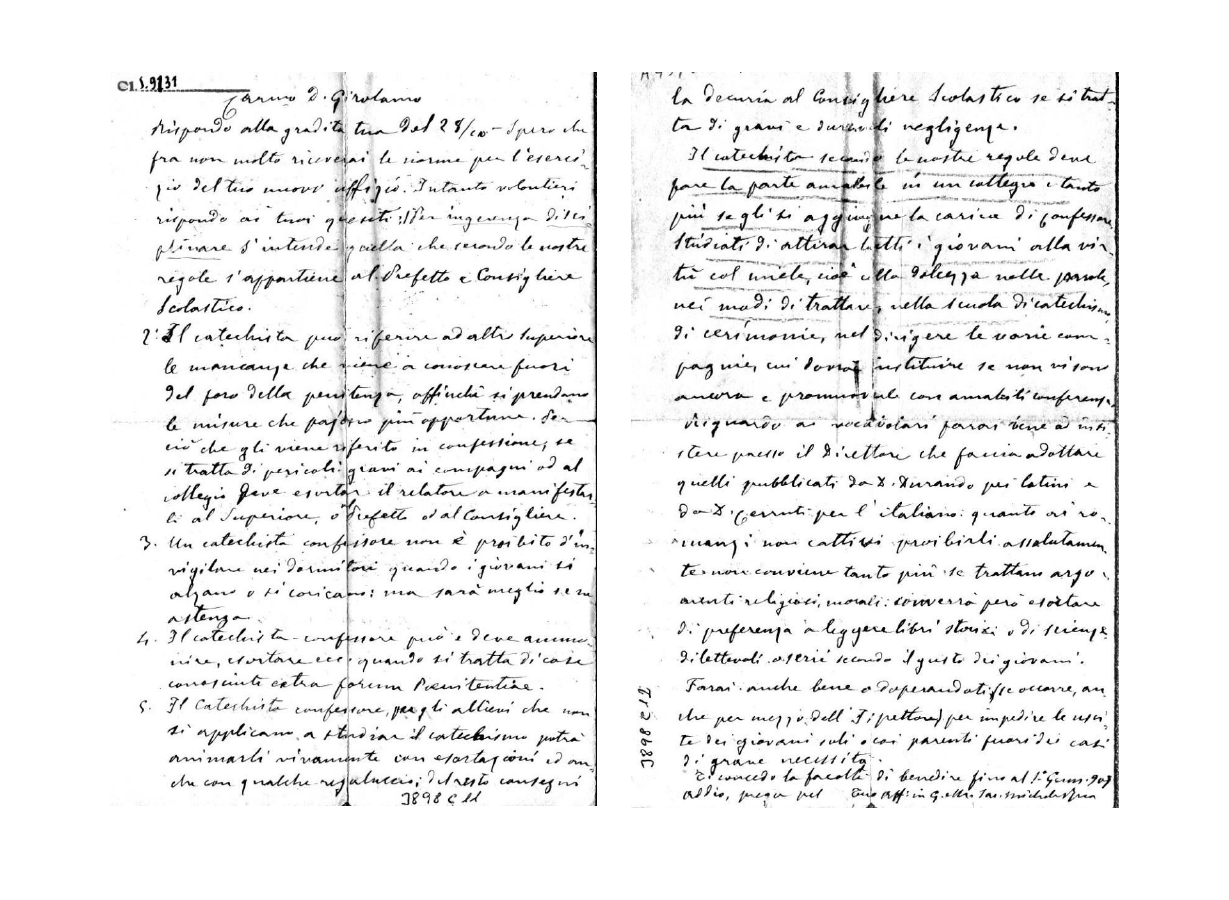 Cl. S.9131
Carmo D. Girolamo
Rispondo alla gradita tua del 28/10 - Spero che
fra non molto riceverai le norme per l'eserci-
zio del tuo nuovo uffizio. Intanto volontieri
rispondo ai tuoi quesiti: Per ingerenza disci
plinare s'intende quella che secondo le nostre
regole s'appartiene al Prefetto e Consigliere
Scolastico.
2. Il catechista può riferire ad altro Superiore
le mancanze che viene a conoscere fuori
del foro della penitenza, affinché si prendano
le misure che pajono più opportune. Per
ciò che gli viene riferito in confessione, se
si tratta di pericoli gravi ai compagni od al
collegio deve esortar il relatore a manifestar
li al Superiore, o Prefetto od al Consigliere.
3. Un catechista confessore non è proibito d'in-
vigilare nei dormitori quando i giovani si
alzano o si coricano: ma sarà meglio se ne
astenga.
4. Il catechista-confessore può e deve ammo-
nire, esortare ecc. quando si tratta di cose
conosciute extra forum Poenitentiae.
5. Il Catechista confessore, pegli allievi che non
si applicano a studiar il catechismo potrà
animarli vivamente con esortazioni ed an-
che con qualche regaluccio; del resto consegni
3898 C 11
la decuria al Consigliere Scolastico se si trat-
ta di gravi e durevoli negligenze.
Il catechista secondo le nostre regole deve
fare la parte amabile in un collegio e tanto
più se gli si aggiugne la carica di confessore
Studiati di attirar tutti i giovani alla vir
tù col miele, cioè colla dolcezza nelle parole,
nei modi di trattare, nella scuola di catechismo
di cerimonie, nel dirigere le varie com-
pagnie, cui dovrai instituire se non vi sono
ancora e promuoverle con amabili conferenze
Riguardo ai vocabolari farai bene ad insi-
stere presso il Direttore che faccia adottare
quelli pubblicati da D. Durando pei latini e
da D. Cerruti per l'italiano: quanto ai ro-
manzi non cattivi proibirli assolutamen-
te non conviene tanto più se trattano argo-
menti religiosi, morali: converrà però esortare
di preferenza a leggere libri storici o di scienze
dilettevoli o serie secondo il gusto dei giovani.
Farai anche bene adoperandoti (se occorre, an
che per mezzo dell'Ispettore) per impedire le usci-
te dei giovani soli o coi parenti fuori dei casi
di grave necessità.
Ti concedo la facoltà di benedire fino al 1° Genn. 907
addio, prega pel Tuo Aff. in G. e M. Sac. Michele Rua
3898 C 12